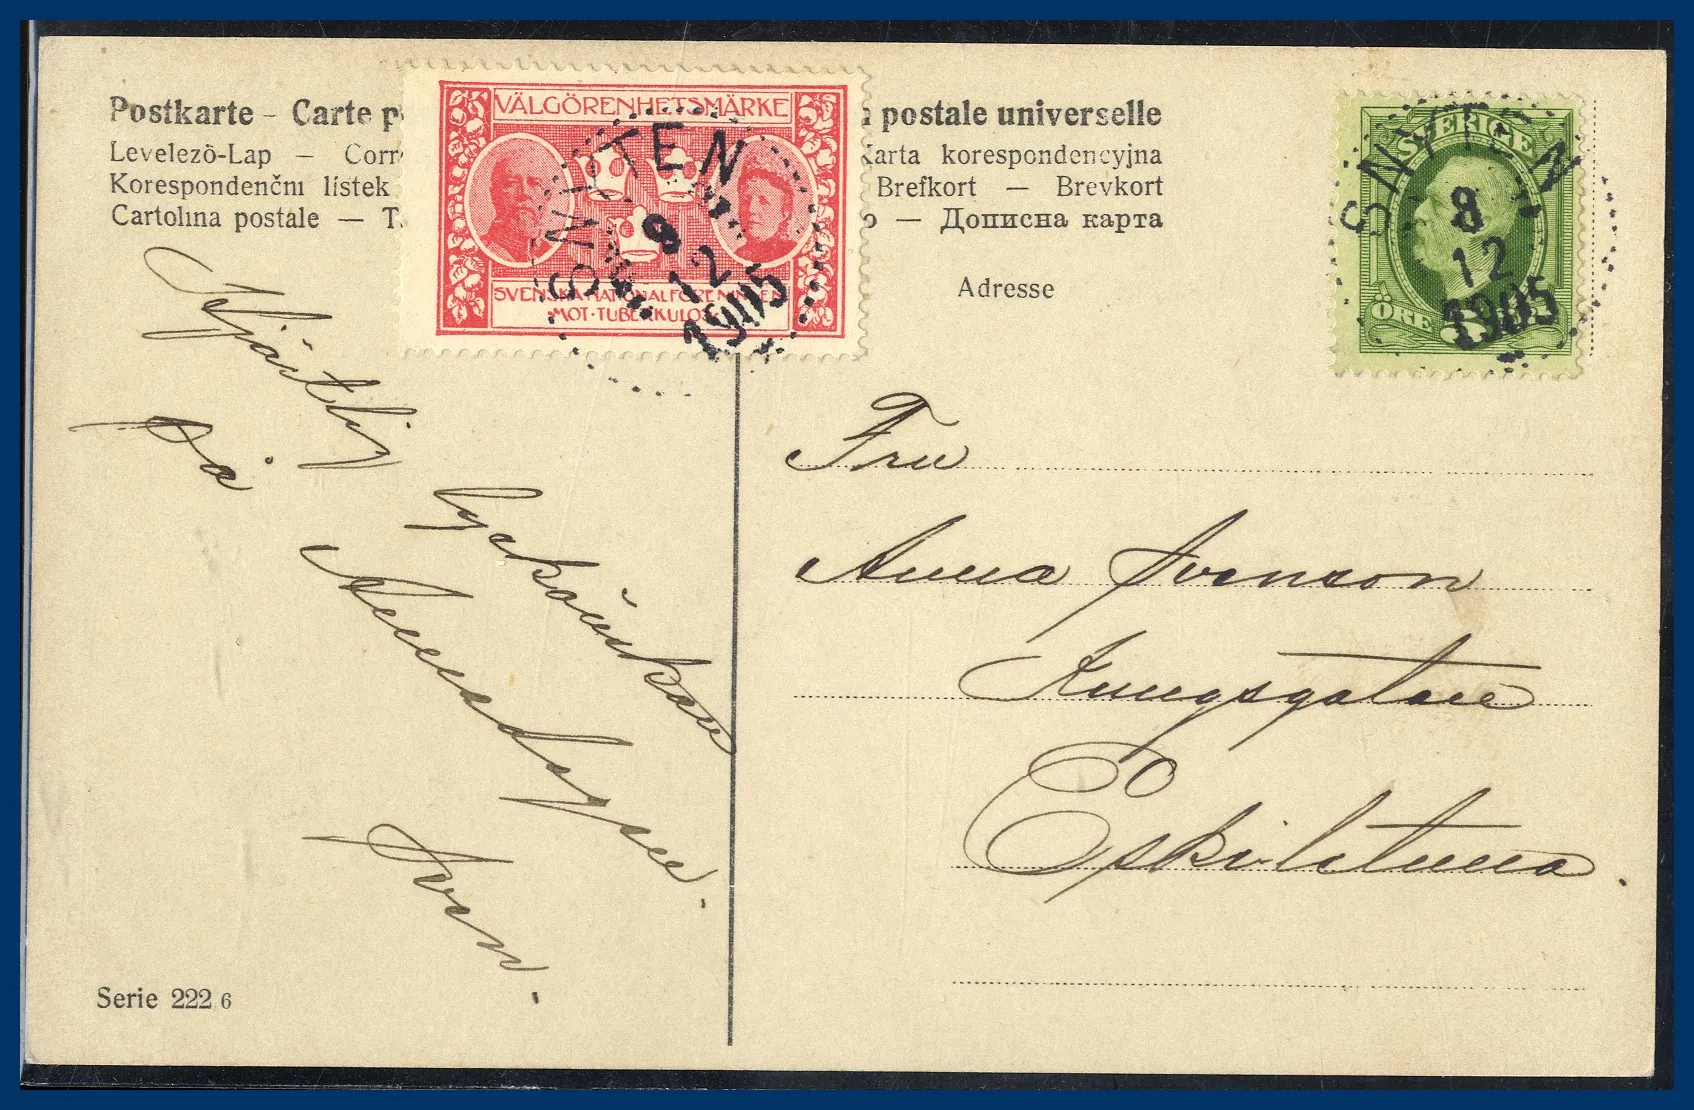 Postkarte – Carte p
a postale universelle
Levelezö-Lap — Corr
Karta korespondencyjna
Korespondenčni lístek
Brefkort — Brevkort
Cartolina postale — T
o — Дописна карта
VÄLGÖRENHETSMÄRKE
SVENSKA NATIONALFÖRENINGEN
MOT·TUBERKULOS
SNYTEN
8
12
1905
SVERIGE
ÖRE 5 ÖRE
SNYTEN
8
12
1905
Adresse
Hjärtlig
lyckönskan
på
Namnsdagen.
Sven.
Fru
Anna Svenson
Kungsgatan
Eskilstuna.
Serie 222 6